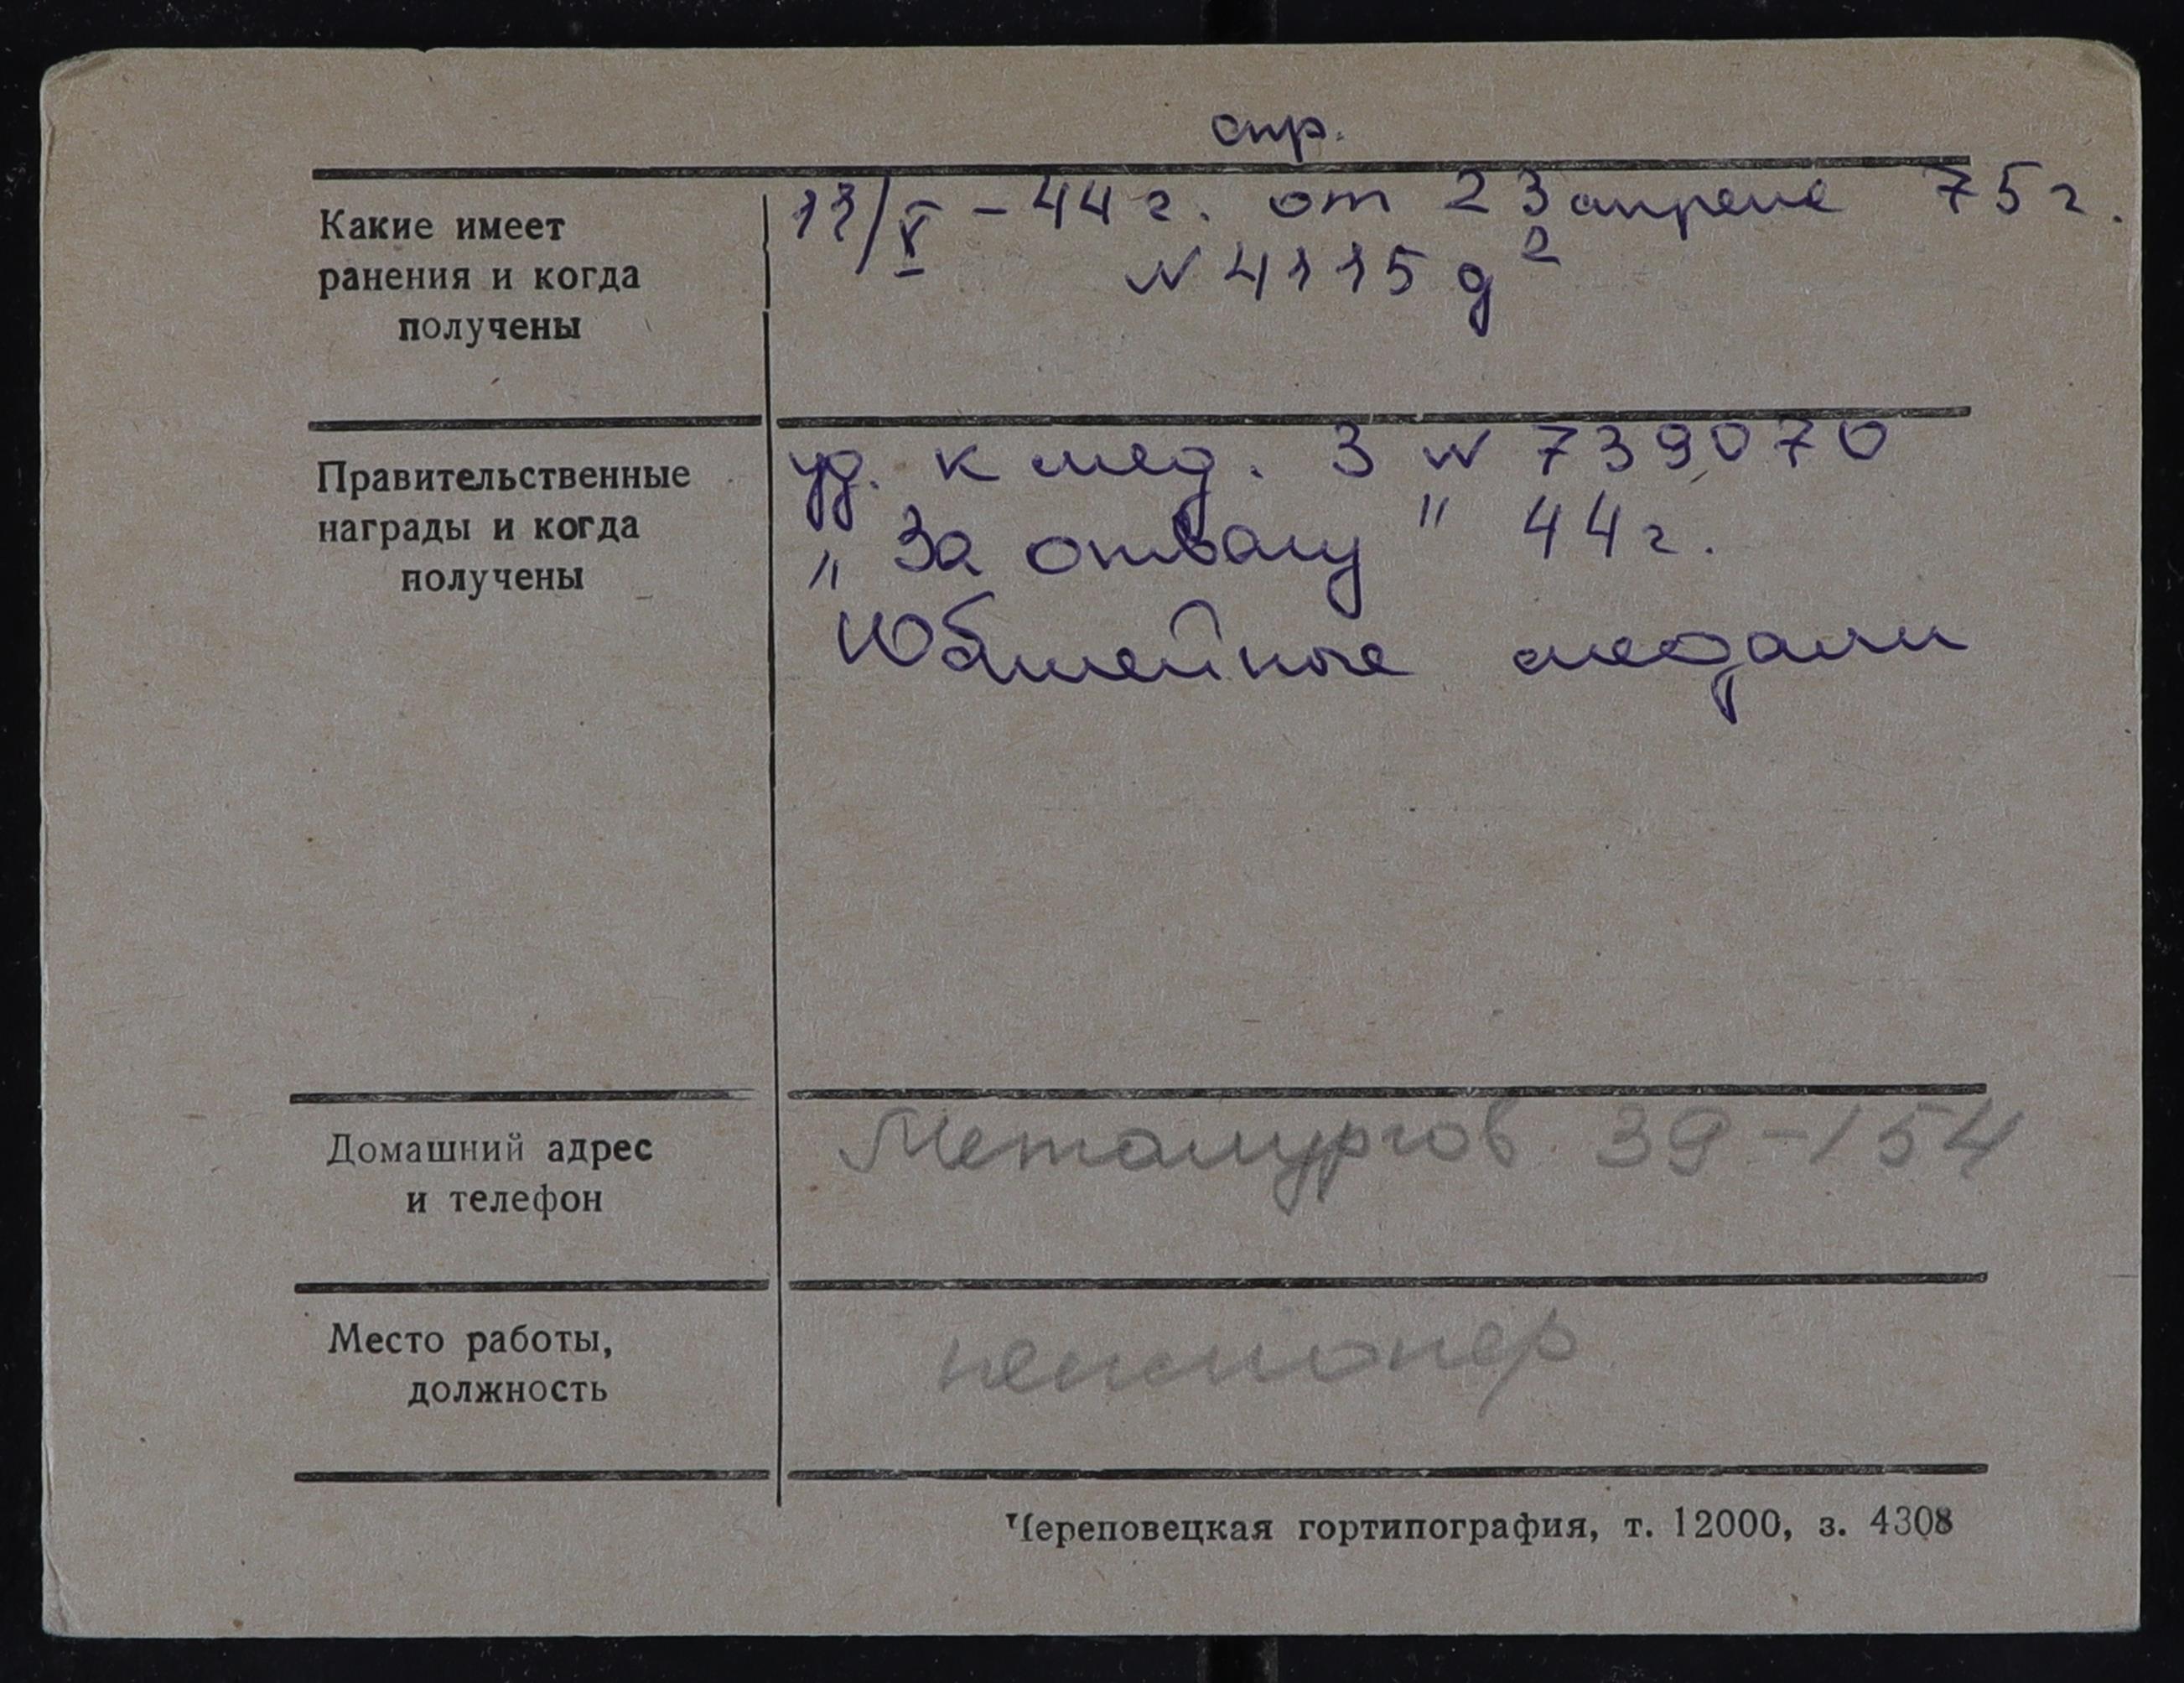 спр.
Какие имеет
ранения и когда
получены
13/V - 44 г. от 23 апреле 75 г.
N 4115 д 2
Правительственные
награды и когда
получены
уд. к мед. З N 739070
„За отвагу" 44 г.
Юбилейные медали
Домашний адрес
и телефон
Металургов 39-154
Место работы,
должность
пенсионер
Череповецкая гортипография, т. 12000, з. 4308